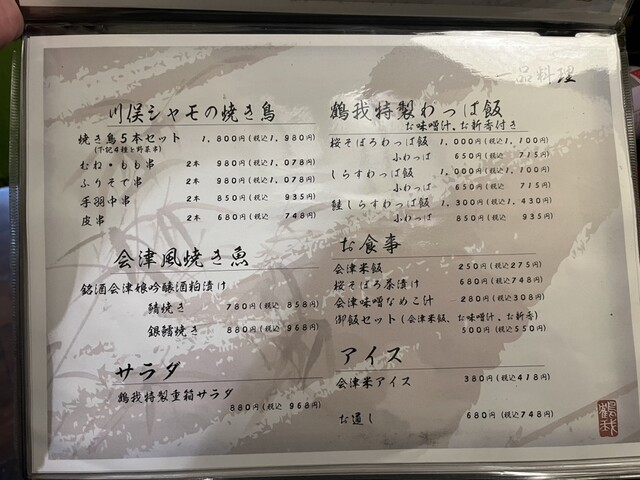 一品料理
川俣シャモの焼き鳥
焼き鳥5本セット 1,800円(税込1,980円)
(下記4種と野菜串)
むね・もも串 2本 980円(税込1,078円)
ふりそで串 2本 980円(税込1,078円)
手羽中串 2本 850円(税込 935円)
皮串 2本 680円(税込 748円)
会津風焼き魚
銘酒会津娘吟醸酒粕漬け
鯖焼き 780円(税込 858円)
銀鱈焼き 880円(税込 968円)
サラダ
鶴我特製重箱サラダ
880円(税込 968円)
鶴我特製わっぱ飯
お味噌汁、お新香付き
桜そぼろわっぱ飯 1,000円(税込1,100円)
小わっぱ 650円(税込 715円)
しらすわっぱ飯 1,000円(税込1,100円)
小わっぱ 650円(税込 715円)
鮭しらすわっぱ飯 1,300円(税込1,430円)
小わっぱ 850円(税込 935円)
お食事
会津米飯 250円(税込275円)
桜そぼろ茶漬け 680円(税込748円)
会津味噌なめこ汁 280円(税込308円)
御飯セット(会津米飯、お味噌汁、お新香)
500円(税込550円)
アイス
会津米アイス 380円(税込418円)
お通し 680円(税込748円)
鶴我